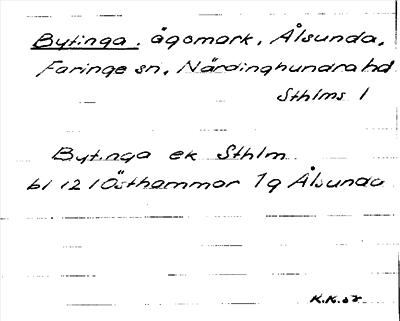 Bytinga. ägomark, Ålsunda,
Faringe sn, Närdinghundra hd
Sthlms l
Bytinga ek Sthlm
bl 121 Östhammar 1g Ålsunda
K.K.